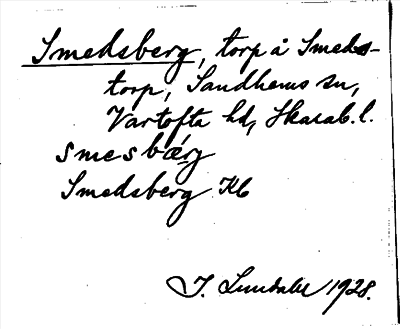 Smedsberg, torp å Smeds-
torp, Sandhems sn,
Vartofta hd, Skarab. l.
smesbærj
Smedsberg Kb
J. Lundahl 1928.